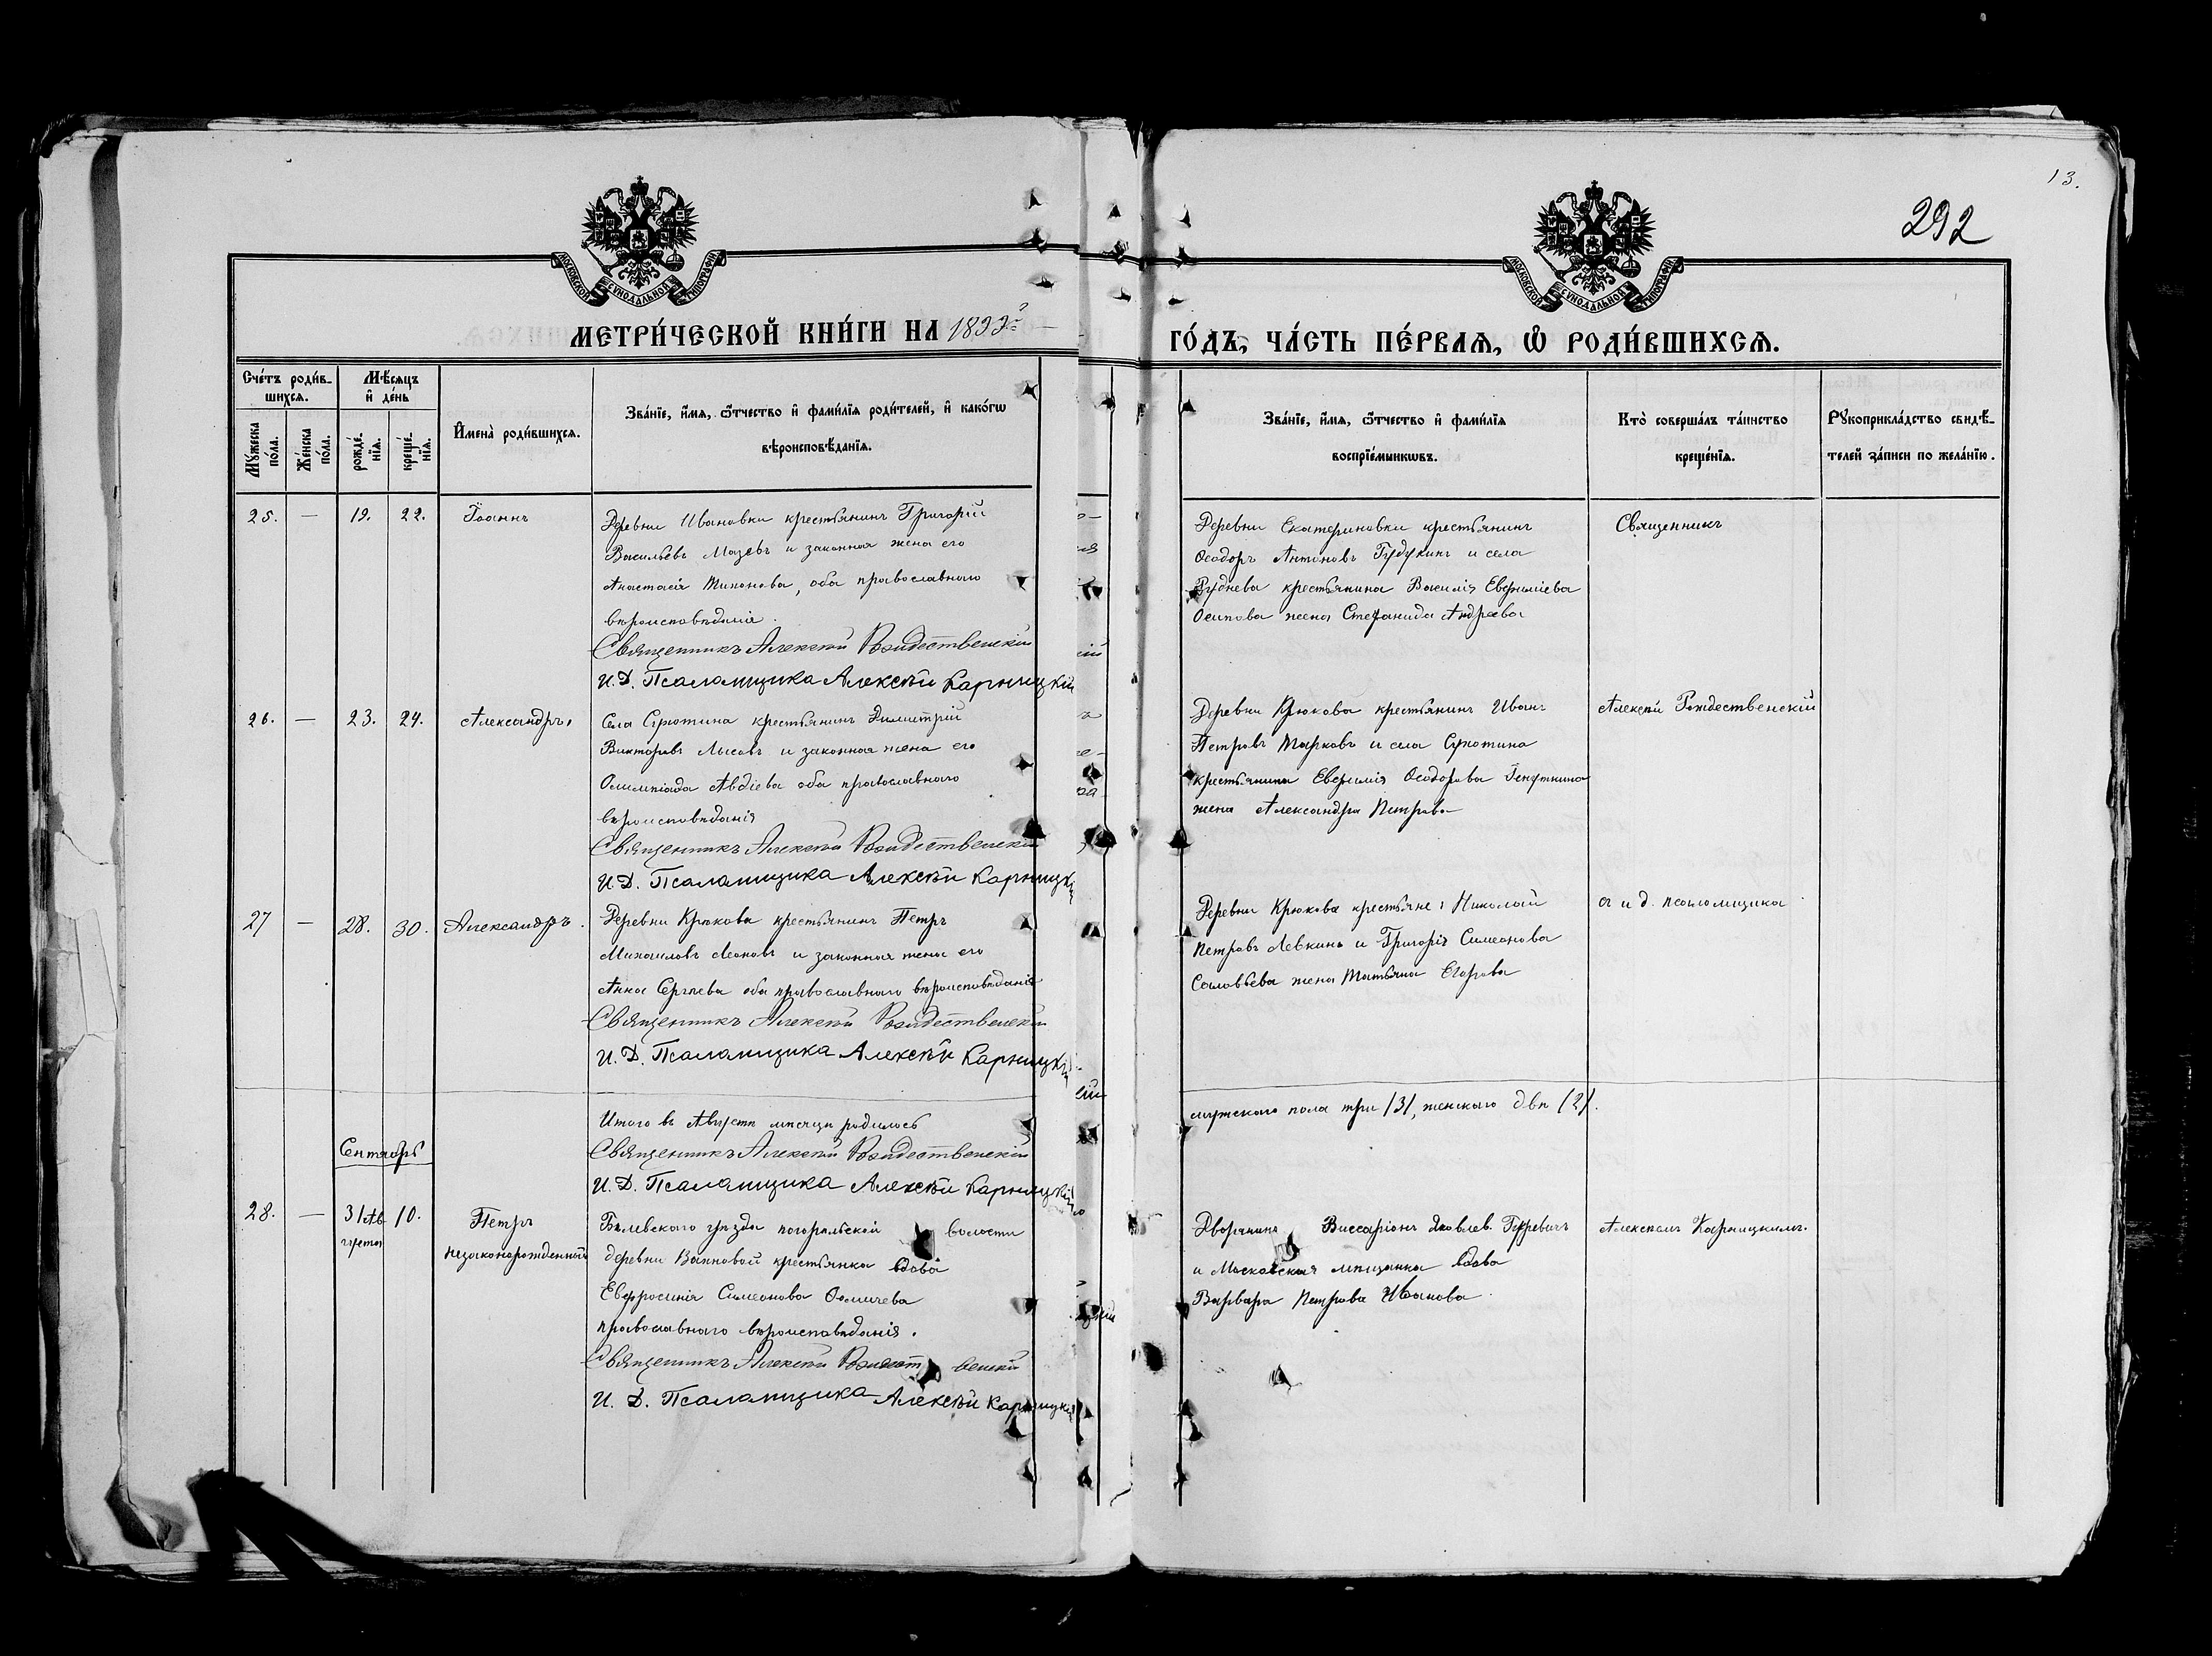 13.
292
МОСКОВСКОЙ СѴНОДАЛЬНОЙ ТИПОГРАФІИ
МОСКОВСКОЙ СѴНОДАЛЬНОЙ ТИПОГРАФІИ
МЕТРИ́ЧЕСКОЙ КНИ́ГИ НА
ГО́ДЪ, ЧА́СТЬ ПЕ́РВАѦ, Ѡ҆ РОДИ́ВШИХСѦ.
Сче́тъ роди́в-
шихсѧ.
Мѣ́сѧцъ
и҆ де́нь
Мꙋ́жеска
по́ла.
Же́нска
по́ла.
рожде́-
нїѧ.
креще́-
нїѧ.
И҆мена̀ роди́вшихсѧ.
Зва́нїе, и҆́мѧ, ѻ҆́тчество и҆ фами́лїѧ роди́телей, и҆ како́гѡ
вѣроисповѣ́данїѧ.
Зва́нїе, и҆́мѧ, ѻ҆́тчество и҆ фами́лїѧ
воспрїе́мникѡвъ.
Кто̀ соверша́лъ та́инство
креще́нїѧ.
Рꙋкоприкла́дство свидѣ́-
телей за́писи по жела́нїю.
25. — 19. 22. Іоаннъ
Деревни Ивановки крестьянинъ Григорій
Васильевъ Мазевъ и законная жена его
Анастасія Тихонова, оба православнаго
вѣроисповѣданія.
Священникъ Алексѣй Рождественскій
И. Д. Псаломщика Алексѣй Карницкій
Деревни Екатериновки крестьянинъ
Ѳеодоръ Антоновъ и села
Руднева крестьянина Василія Евфиміева
Осипова жена Стефанида Андреева
Священникъ
26. — 23. 24. Александръ
Села Сухотина крестьянинъ Димитрій
Викторовъ Лысовъ и законная жена его
Олимпіада Авдіева оба православнаго
вѣроисповѣданія
Священникъ Алексѣй Рождественскій
И. Д. Псаломщика Алексѣй Карницкій
Деревни Крюкова крестьянинъ Иванъ
Петровъ Марковъ и села Сухотина
крестьянина Евфимія Ѳеодорова
жена Александра Петрова
Алексѣй Рождественскій
27 — 28. 30. Александръ.
Деревни Крюкова крестьянинъ Петръ
Михаиловъ Леоновъ и законная жена его
Анна Сергѣева оба православнаго вѣроисповѣданія
Священникъ Алексѣй Рождественскій
И. Д. Псаломщика Алексѣй Карницкій
Деревни Крюкова крестьяне: Николай
Петровъ Левкинъ и Григорія Симеонова
Соловьева жена Татьяна Егорова
съ и д. псаломщика
Итого въ Августѣ мѣсяцѣ родилось
мужескаго пола три /3/, женскаго двѣ /2/.
Священникъ Алексѣй Рождественскій
И. Д. Псаломщика Алексѣй Карницкій
Сентябрь
28. — 31 Ав 10. Петръ
густа незаконорожденный
Бѣлевскаго уѣзда волости
деревни крестьянка вдова
Евфросинія Симеонова Ѳомичева
православнаго вѣроисповѣданія.
Священникъ Алексѣй Рождественскій
И. Д. Псаломщика Алексѣй Карницкій
Дворянинъ Виссаріонъ Яковлев. Гуревичъ
и Московская мѣщанка вдова
Варвара Петрова Иванова.
Алексѣемъ Карницкимъ.